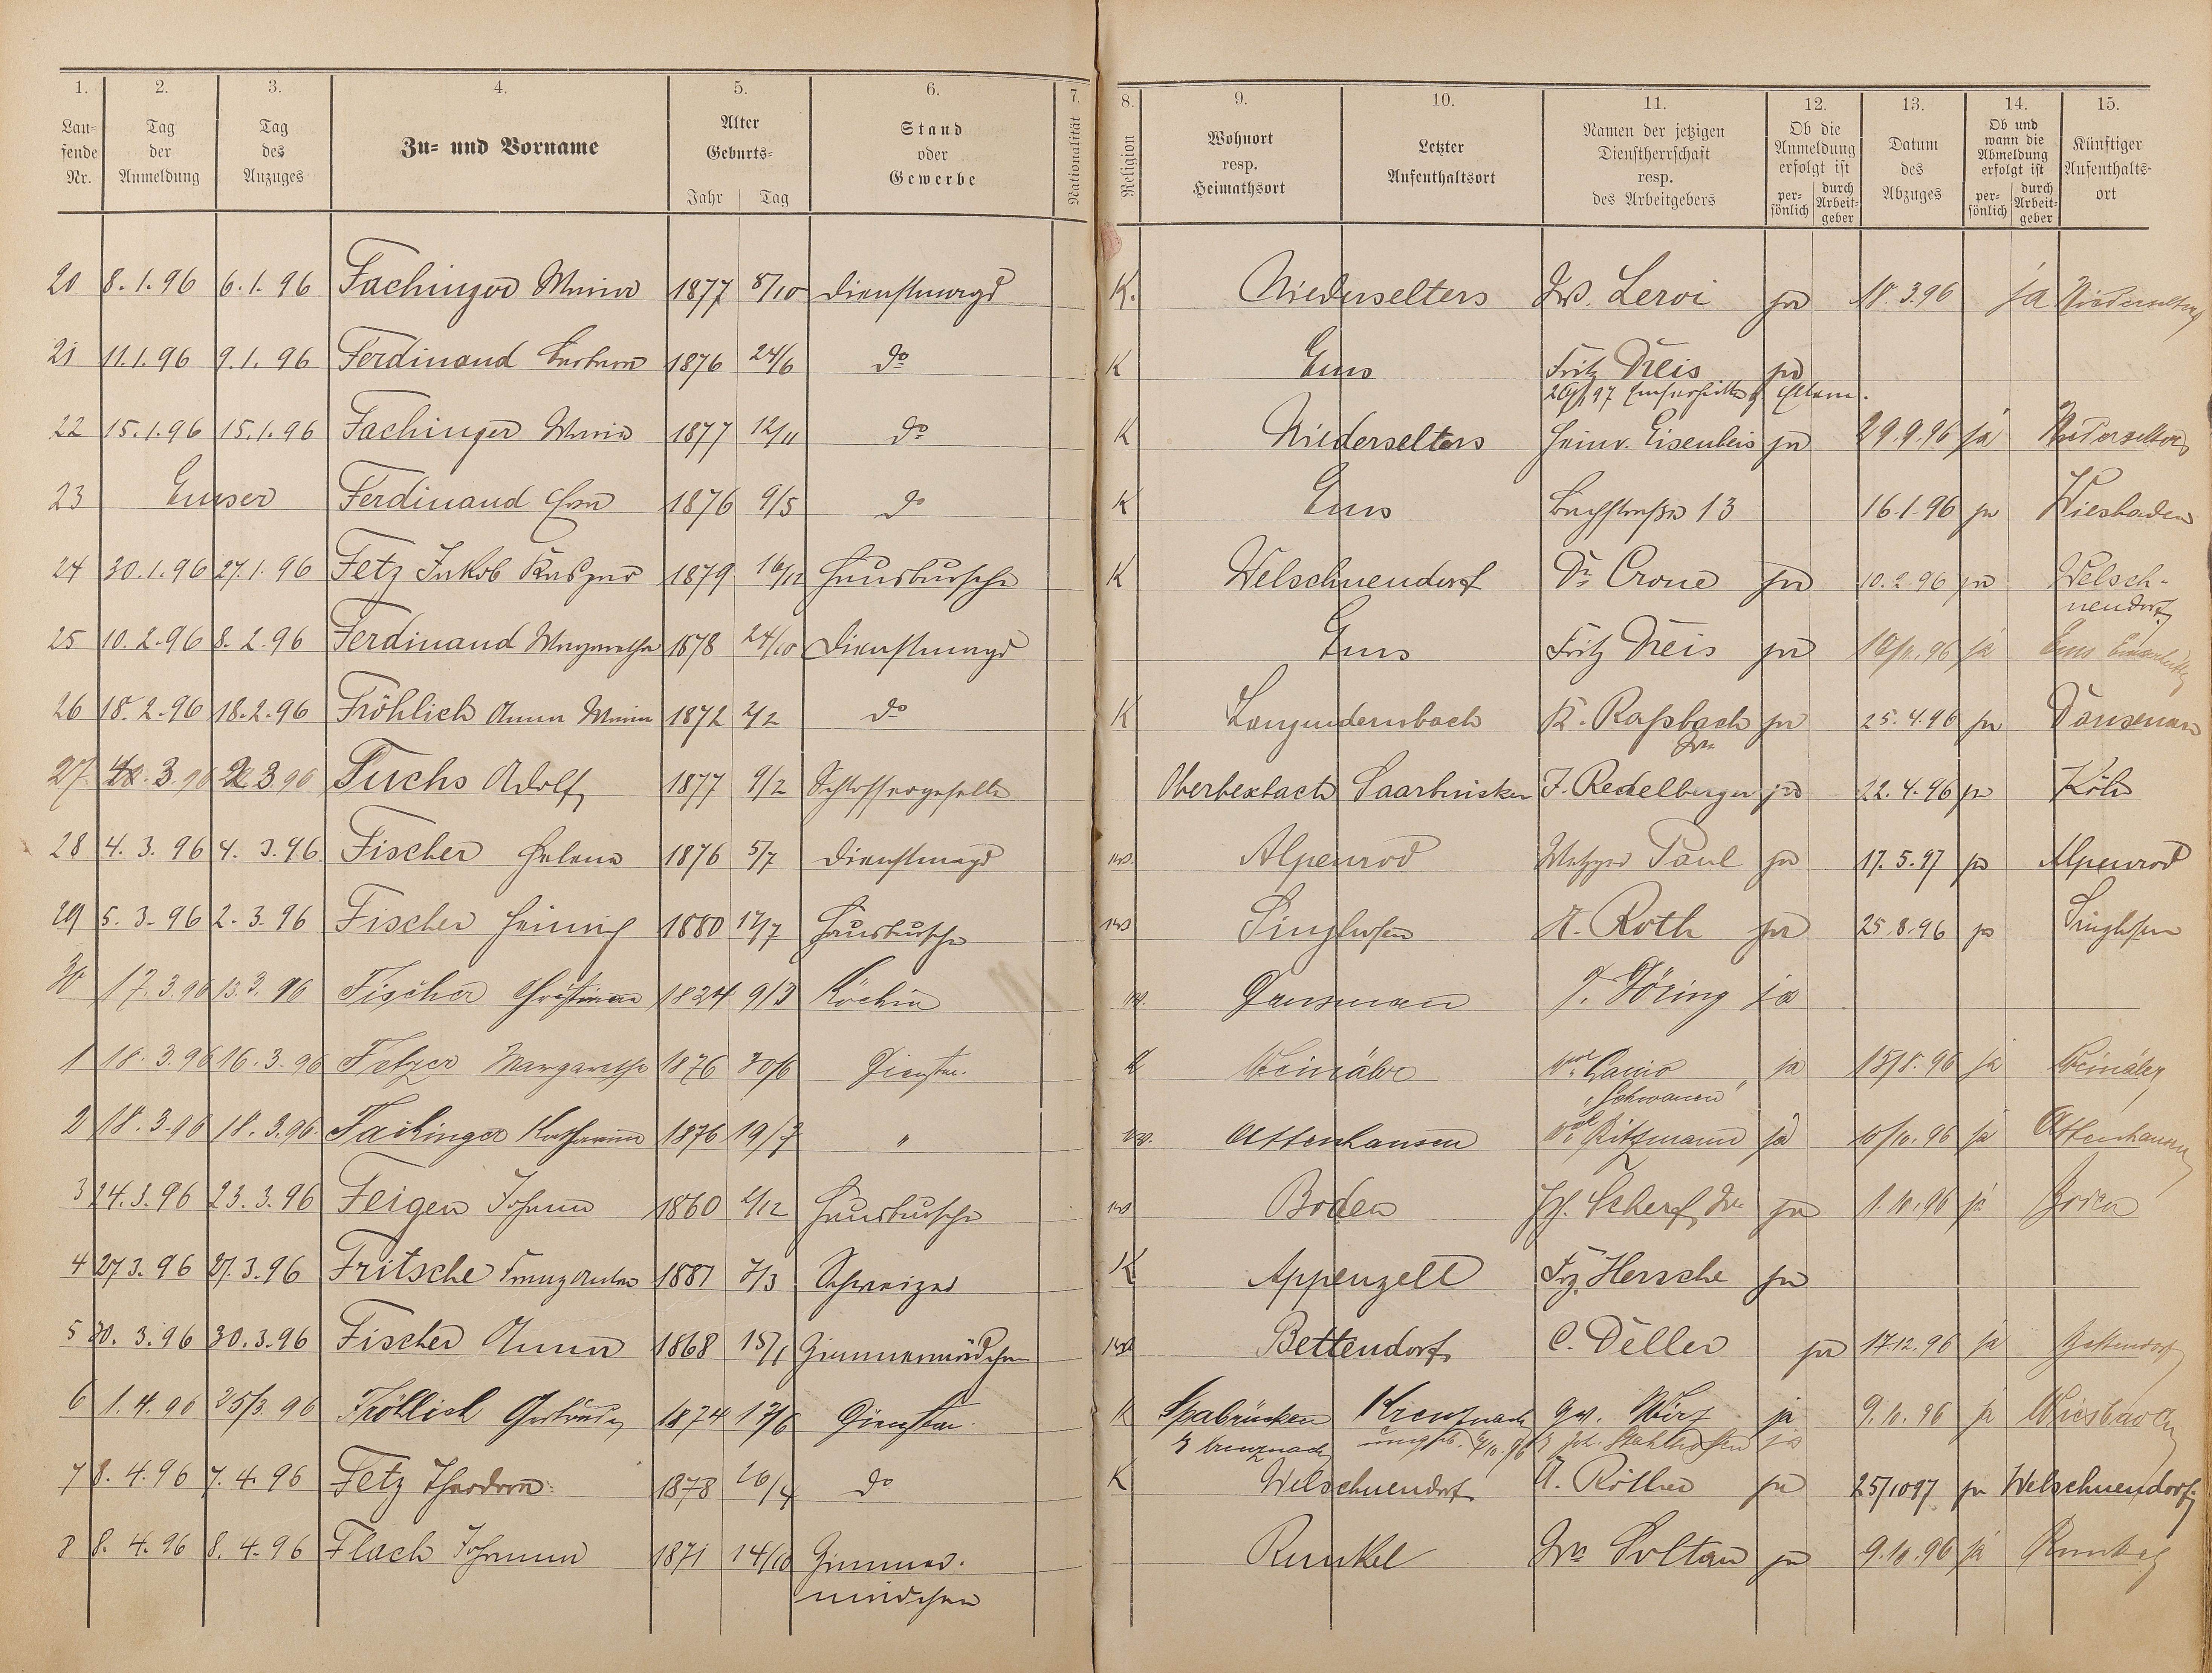 1. 2. 3. 4. 5. 6. 7. 8. 9. 10. 11. 12. 13. 14. 15.
Lau-
fende
Nr.
Tag
der
Anmeldung
Tag
des
Anzuges
Zu- und Vorname
Alter
Geburts-
Jahr Tag
Stand
oder
Gewerbe
Nationalität
Religion
Wohnort
resp.
Heimathsort
Letzter
Aufenthaltsort
Namen der jetzigen
Dienstherrschaft
resp.
des Arbeitgebers
Ob die
Anmeldung
erfolgt ist
per-
sönlich
durch
Arbeit-
geber
Datum
des
Abzuges
Ob und
wann die
Abmeldung
erfolgt ist
per-
sönlich
durch
Arbeit-
geber
Künftiger
Aufenthalts-
ort
20 8.1.96 6.1.96 Fachinger Maria 1877 8/10 Dienstmagd K. Niederselters Ww. Leroi ja 18.3.96 ja Niederselters
21 11.1.96 9.1.96 Ferdinand Barbara 1876 24/6 do K Ems Fritz Dreis ja
22 15.1.96 15.1.96 Fachinger Maria 1877 12/11 do K Niederselters Heinr. Eisenbeis ja 29.9.96 ja Niederselters
23 Emser Ferdinand Eva 1876 9/5 do K Ems Bachstraße 13 16.1.96 ja Wiesbaden
24 30.1.96 27.1.96 Fetz Jakob Kaspar 1879 16/12 Hausbursche K Welschneudorf Dr. Crone ja 10.2.96 ja Welsch-
neudorf
25 10.2.96 8.2.96 Ferdinand Margaretha 1878 24/10 Dienstmagd Ems Fritz Dreis ja 10/11.96 ja Ems
26 18.2.96 18.2.96 Fröhlich Anna Maria 1872 2/2 do K Langendernbach K. Raßbach ja 25.4.96 ja Dausenau
Ww.
27. 3.96 3.96 Fuchs Adolf 1877 9/2 Schlossergeselle Oberbexbach Saarbrücken F. Redelberger ja 22.4.96 ja Köln
28 4.3.96 4.3.96 Fischer Helena 1876 5/7 Dienstmagd ev. Alpenrod Metzger Paul ja 17.5.97 ja Alpenrod
29 5.3.96 2.3.96 Fischer Heinrich 1880 12/7 Hausbursche ev Singhofen A. Roth ja 25.8.96 ja Singhofen
30 17.3.96 13.3.96 Fischer Christiane 1824 9/3 Köchin ev. Dausenau J. Döring ja
1 18.3.96 16.3.96 Fetzer Margarethe 1876 30/6 Dienstm. K Weinähr ja 15/8.96 ja Weinähr
"Schwanen"
2 18.3.96 18.3.96 Fachinger Katharina 1876 19/7 " ev. Attenhausen Ritzmann ja 10/10.96 ja Attenhausen
3 24.3.96 23.3.96 Feigen Johann 1860 2/12 Hausbursche ev Boden Jos. Scherf Ww. ja 1.10.96 ja Boden
4 27.3.96 27.3.96 Fritsche Franz Anton 1881 7/3 Schweizer K Appenzell Frz. Hersche ja
5 30.3.96 30.3.96 Fischer Anna 1868 15/1 Zimmermädchen ev Bettendorf C. Deller ja 17.12.96 ja Bettendorf
6 1.4.96 25/3.96 Fröhlich Gertrud 1874 17/6 Dienstm. K Spabrücken Kreuznach Gg. Würz ja 9.10.96 ja Wiesbaden
Kreuznach Joh. Stahlhofen ja
7 8.4.96 7.4.96 Fetz Theodora 1878 26/4 do K Welschneudorf A. Röther ja 25/10 97 ja Welschneudorf
8 8.4.96 8.4.96 Flach Johanna 1871 14/10 Zimmer- Runkel Ww. Soltau ja 9.10.96 ja Runkel
mädchen